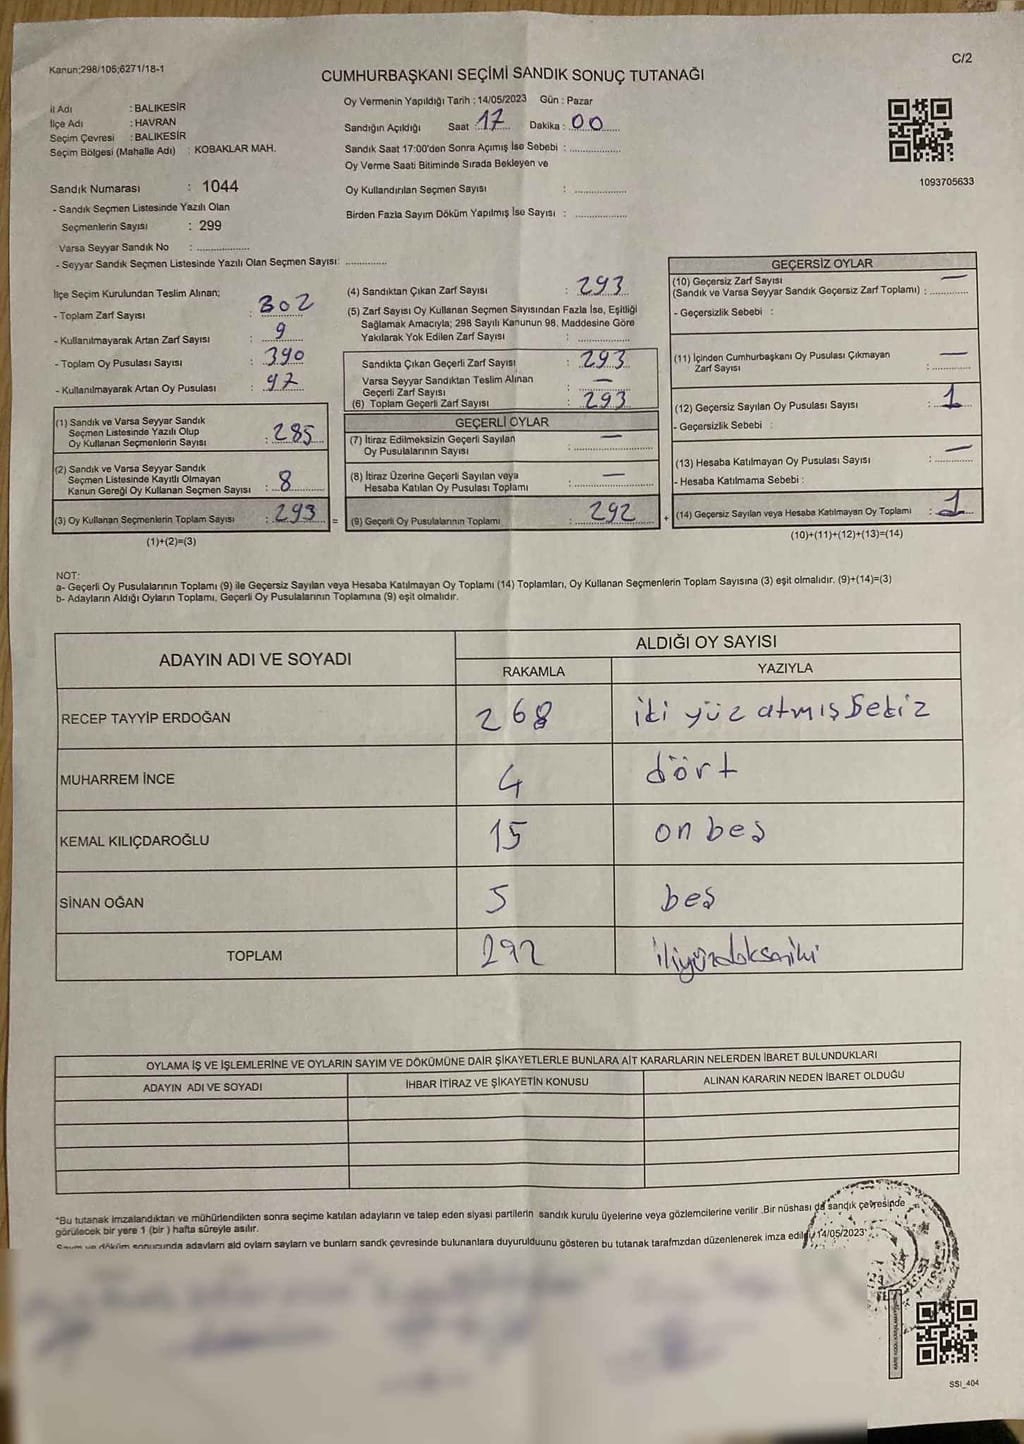 Kanun:298/105;6271/18-1
C/2
CUMHURBAŞKANI SEÇİMİ SANDIK SONUÇ TUTANAĞI
İl Adı : BALIKESİR
İlçe Adı : HAVRAN
Seçim Çevresi : BALIKESİR
Seçim Bölgesi (Mahalle Adı) : KOBAKLAR MAH.
Sandık Numarası : 1044
- Sandık Seçmen Listesinde Yazılı Olan
Seçmenlerin Sayısı : 299
Varsa Seyyar Sandık No : ................
- Seyyar Sandık Seçmen Listesinde Yazılı Olan Seçmen Sayısı: ............
Oy Vermenin Yapıldığı Tarih : 14/05/2023 Gün : Pazar
Sandığın Açıldığı Saat : 17 Dakika : 00
Sandık Saat 17:00'den Sonra Açımış İse Sebebi : ................
Oy Verme Saati Bitiminde Sırada Bekleyen ve
Oy Kullandırılan Seçmen Sayısı : ................
Birden Fazla Sayım Döküm Yapılmış İse Sayısı : ................
1093705633
İlçe Seçim Kurulundan Teslim Alınan;
- Toplam Zarf Sayısı : 302
- Kullanılmayarak Artan Zarf Sayısı : 9
- Toplam Oy Pusulası Sayısı : 390
- Kullanılmayarak Artan Oy Pusulası : 97
(1) Sandık ve Varsa Seyyar Sandık
Seçmen Listesinde Yazılı Olup
Oy Kullanan Seçmenlerin Sayısı : 285
(2) Sandık ve Varsa Seyyar Sandık
Seçmen Listesinde Kayıtlı Olmayan
Kanun Gereği Oy Kullanan Seçmen Sayısı : 8
(3) Oy Kullanan Seçmenlerin Toplam Sayısı : 293 =
(1)+(2)=(3)
(4) Sandıktan Çıkan Zarf Sayısı : 293
(5) Zarf Sayısı Oy Kullanan Seçmen Sayısından Fazla İse, Eşitliği
Sağlamak Amacıyla; 298 Sayılı Kanunun 98. Maddesine Göre
Yakılarak Yok Edilen Zarf Sayısı : ................
Sandıkta Çıkan Geçerli Zarf Sayısı : 293
Varsa Seyyar Sandıktan Teslim Alınan
Geçerli Zarf Sayısı : —
(6) Toplam Geçerli Zarf Sayısı : 293
GEÇERLİ OYLAR
(7) İtiraz Edilmeksizin Geçerli Sayılan
Oy Pusulalarının Sayısı : —
(8) İtiraz Üzerine Geçerli Sayılan veya
Hesaba Katılan Oy Pusulası Toplamı : —
(9) Geçerli Oy Pusulalarının Toplamı : 292 +
GEÇERSİZ OYLAR
(10) Geçersiz Zarf Sayısı —
(Sandık ve Varsa Seyyar Sandık Geçersiz Zarf Toplamı) : ............
- Geçersizlik Sebebi :
(11) İçinden Cumhurbaşkanı Oy Pusulası Çıkmayan —
Zarf Sayısı : ............
(12) Geçersiz Sayılan Oy Pusulası Sayısı : 1
- Geçersizlik Sebebi :
(13) Hesaba Katılmayan Oy Pusulası Sayısı : —
- Hesaba Katılmama Sebebi :
(14) Geçersiz Sayılan veya Hesaba Katılmayan Oy Toplamı : 1
(10)+(11)+(12)+(13)=(14)
NOT:
a- Geçerli Oy Pusulalarının Toplamı (9) ile Geçersiz Sayılan veya Hesaba Katılmayan Oy Toplamı (14) Toplamları, Oy Kullanan Seçmenlerin Toplam Sayısına (3) eşit olmalıdır. (9)+(14)=(3)
b- Adayların Aldığı Oyların Toplamı, Geçerli Oy Pusulalarının Toplamına (9) eşit olmalıdır.
ADAYIN ADI VE SOYADI ALDIĞI OY SAYISI
RAKAMLA YAZIYLA
RECEP TAYYİP ERDOĞAN 268 iki yüz atmış sekiz
MUHARREM İNCE 4 dört
KEMAL KILIÇDAROĞLU 15 on beş
SİNAN OĞAN 5 beş
TOPLAM 292 ikiyüzdoksaniki
OYLAMA İŞ VE İŞLEMLERİNE VE OYLARIN SAYIM VE DÖKÜMÜNE DAİR ŞİKAYETLERLE BUNLARA AİT KARARLARIN NELERDEN İBARET BULUNDUKLARI
ADAYIN ADI VE SOYADI İHBAR İTİRAZ VE ŞİKAYETİN KONUSU ALINAN KARARIN NEDEN İBARET OLDUĞU
"Bu tutanak imzalandıktan ve mühürlendikten sonra seçime katılan adayların ve talep eden siyasi partilerin sandık kurulu üyelerine veya gözlemcilerine verilir .Bir nüshası da sandık çevresinde
görülecek bir yere 1 (bir ) hafta süreyle asılır.
Sayım ve döküm sonucunda adayların ald oyların sayların ve bunların sandk çevresinde bulunanlara duyurulduunu gösteren bu tutanak tarafmzdan düzenlenerek imza edildi 14/05/2023"
SSI_404